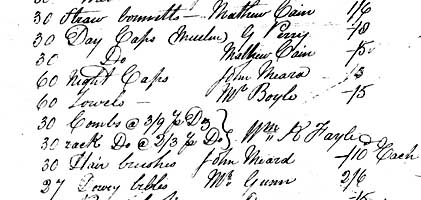 30 Straw bonnetts - Mathew Cain 1/6
30 Day Caps (Muslin) G Perry -/8
30 Do Mathew Cain -/5
60 Night Caps John Meard -/5
60 Towels - Mr Boyle -/5
30 Combs @ 3/9 Do } Wm R Fayle
30 rack Do @ 2/3 Do }
30 Hair brushes John Meard -/10 Each
27 bibles Mr Gunn 2/6